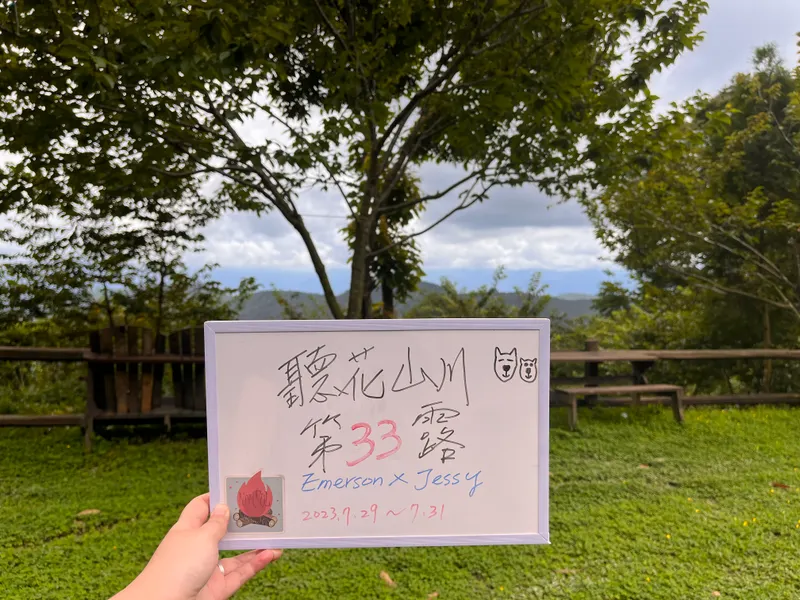 聽花山川
第33露
Emerson x Jessy
2023.7.29 ~ 7.31